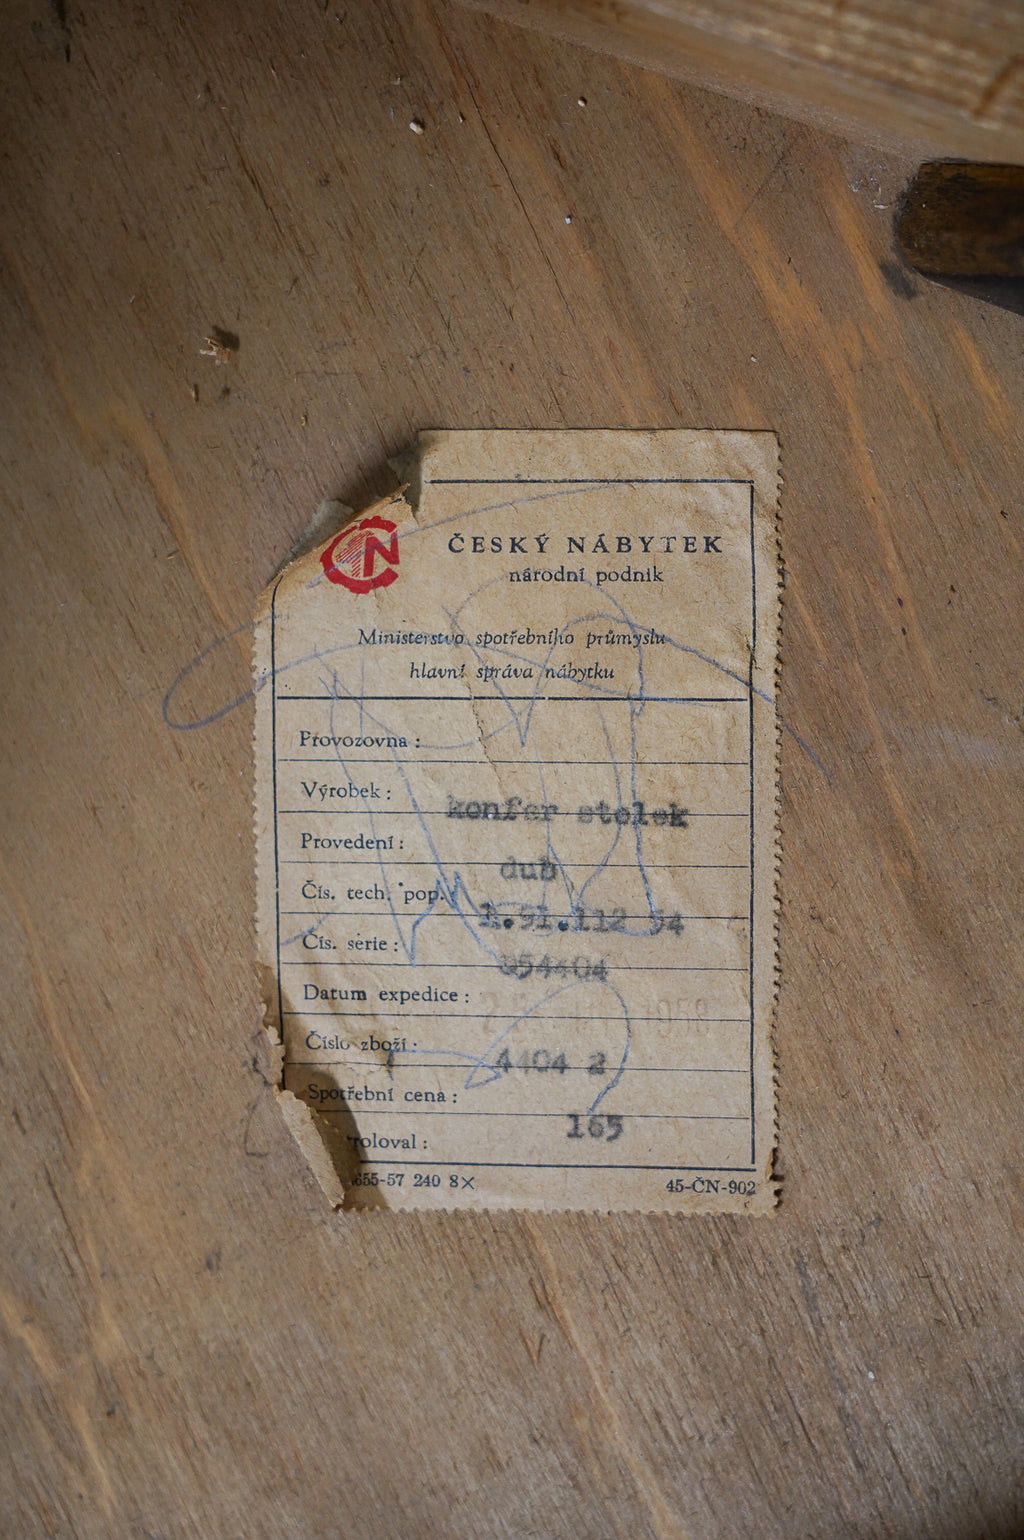 ČN
ČESKÝ NÁBYTEK
národní podnik
Ministerstvo spotřebního průmyslu
hlavní správa nábytku
Provozovna :
Výrobek : konfer stolek
Provedení : dub
Čís. tech. pop. : 1.91.112 54
Čís. série : 054404
Datum expedice :
Číslo zboží : 4404 2
Spotřební cena : 165
roloval :
655-57 240 8X 45-ČN-902